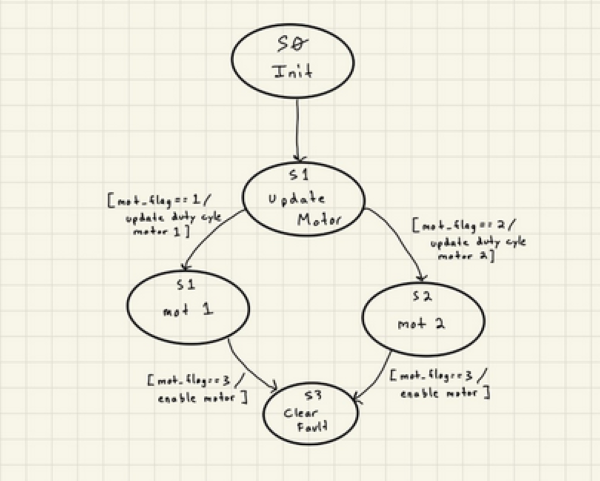 S0
Init
S1
update
Motor
[mot_flag == 1/
update duty cyle
motor 1]
[mot_flag == 2/
update duty cyle
motor 2]
S1
mot 1
S2
mot 2
[mot_flag==3/
enable motor]
[mot_flag==3/
enable motor]
S3
Clear
Fault